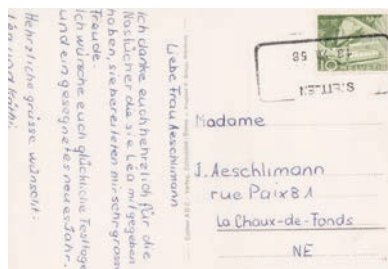 Liebe Frau Aeschlimann
Ich danke euch hehrzlich für die
Nastücher die sie Léa mitgegeben
haben, sie bereiteten mir sehr grosse
Freude.
Ich wünsche euch glückliche Festtage
und ein gesegnetes neues Jahr.
Hehrzliche grüsse wünscht:
Madame
J. Aeschlimann
rue Paix 81
La Chaux-de-Fonds
NE
10
58